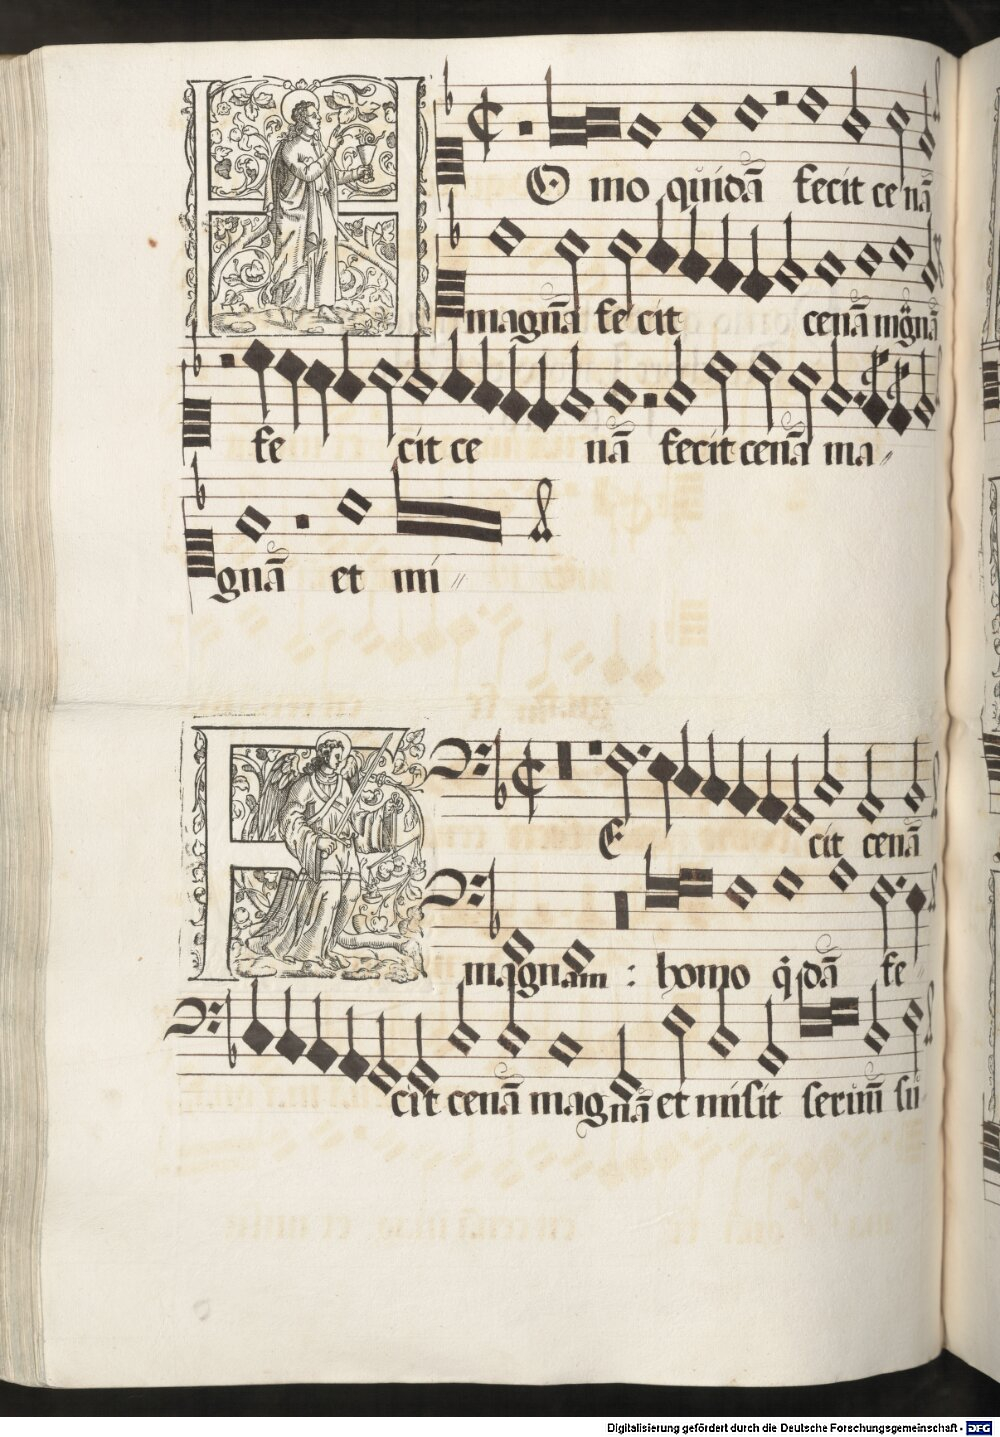 HOmo quidā fecit ce nā
magnā fe cit cenā mgnā
fe cit ce nā fecit cenā ma〃
gnā et mi〃
FE cit cenā
magnam : homo qdā fe〃
cit cenā magnā et misit seruū su
Digitalisierung gefördert durch die Deutsche Forschungsgemeinschaft - DFG